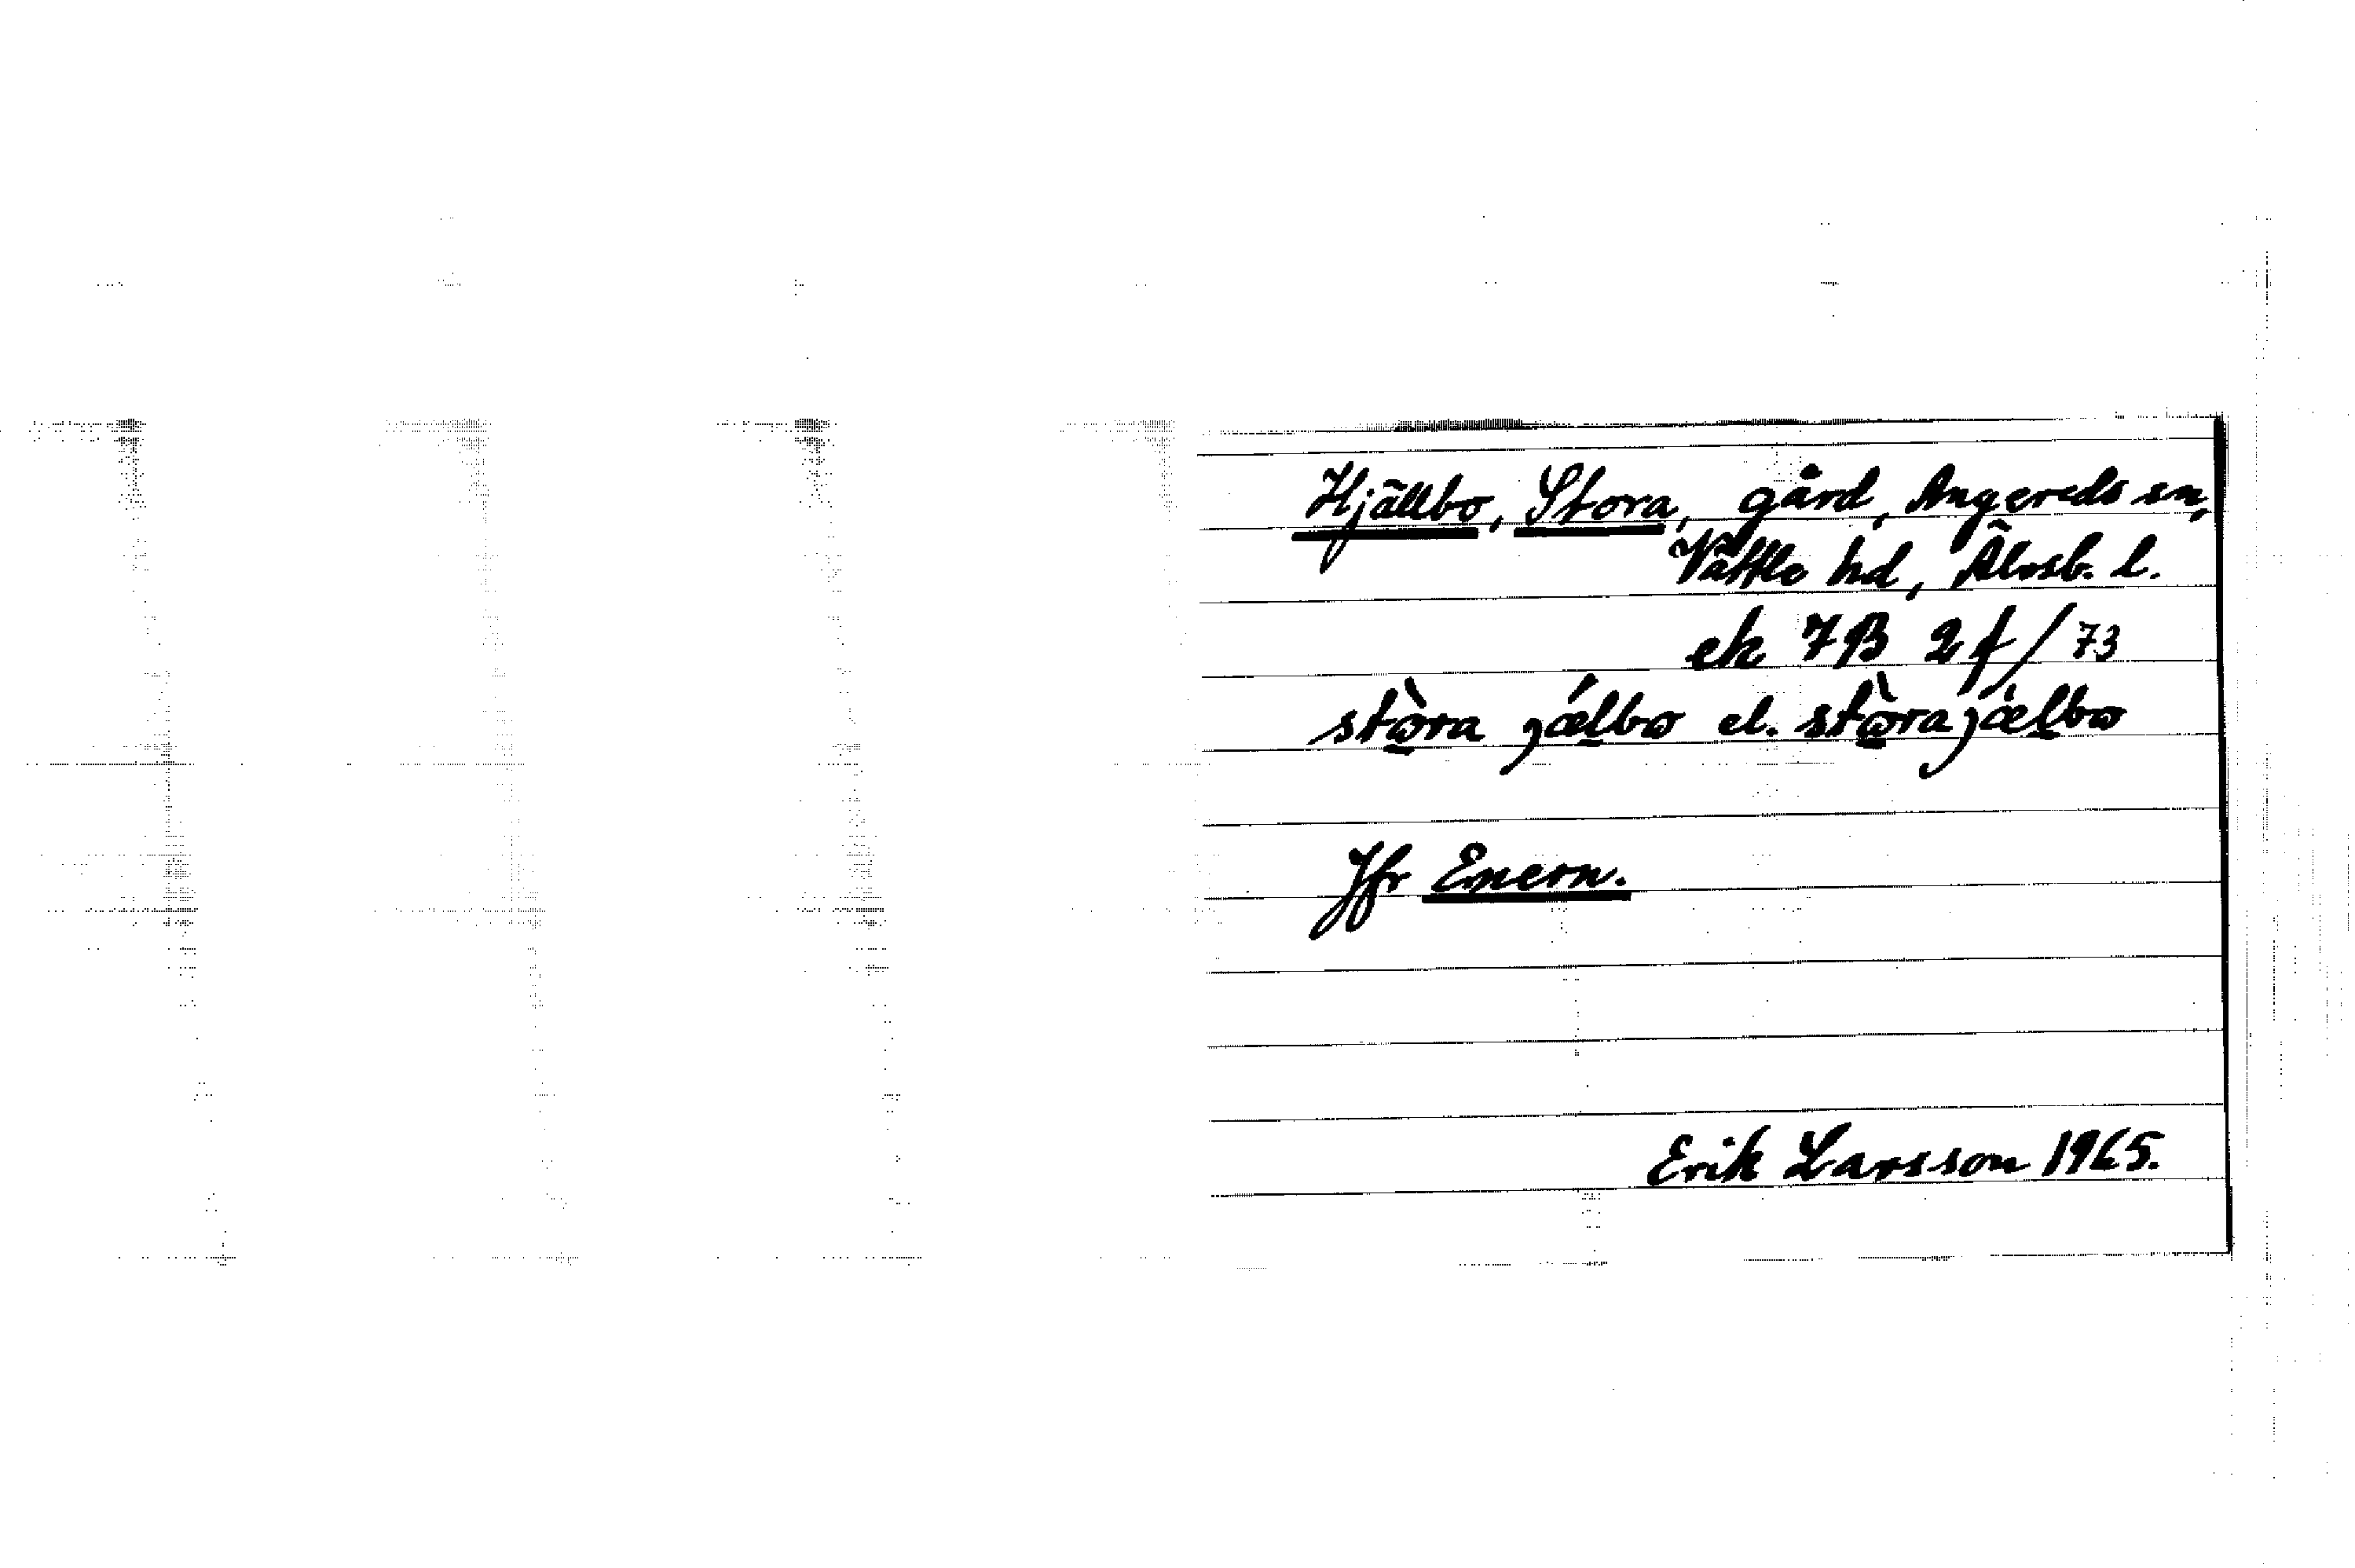 Hjällbo, Stora, gård, Angereds sn,
Vättle hd, Älvsb. l.
ek 7B 2f/73
stὼra jǽlbω el. stὼrajǽlbω
Jfr Enern.
Erik Larsson 1965.